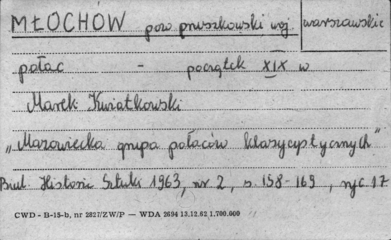 MŁOCHÓW pow. pruszkowski woj. warszawskie
pałac - początek XIX w
Marek Kwiatkowski
„Mazowiecka grupa pałaców klasycystycznych"
Biul. Historii Sztuki 1963, nr 2, s. 158-169, ryc. 17
CWD - B-15-b, nr 2827/ZW/P — WDA 2694 13.12.62 1.700.000